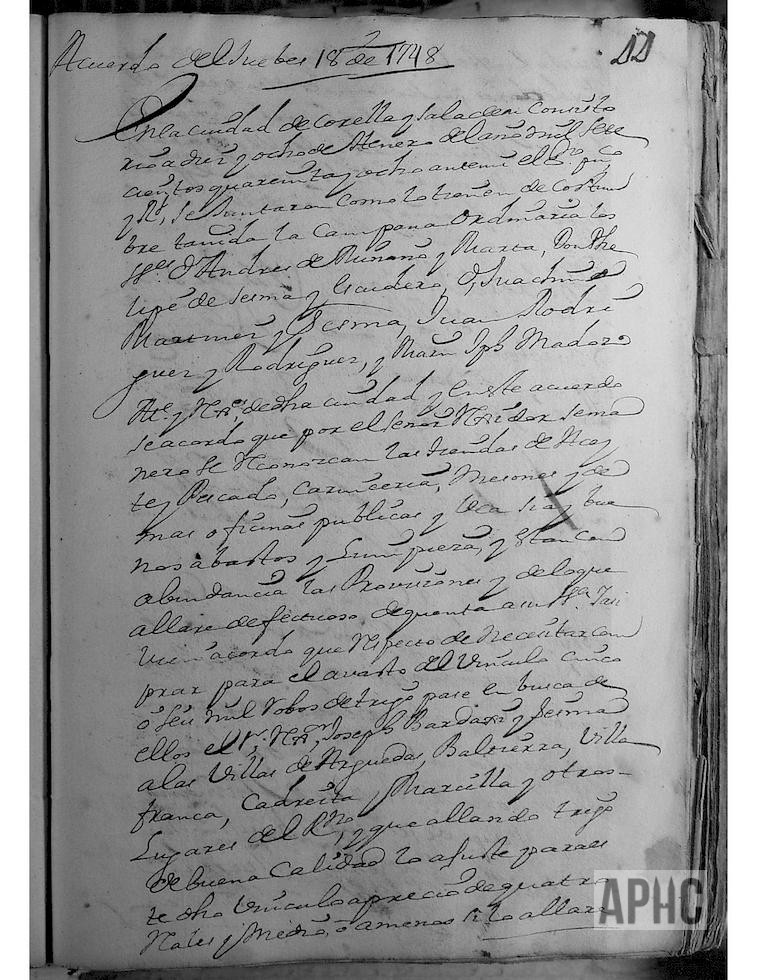 Acuerdo del Juebes 18 de 1748
44
En la ciudad de Corella y sala de su Consisto
rio a diez y ocho de Henero del año mil sete
cientos quarenta y ocho ante mi el Ess.no pu.co
y R.l, se Juntaron como lo tienen de Costum
bre tañida la Campana Ordinaria los
SS.res D.n Andres de Miñano y Marta, Don Phe
lipe de Sesma y Escudero, D. Juachin
Martinez y Sesma, Juan Rodri
guez y Rodriguez, y Man Jph Madorz
Al.e y R.es de dha ciudad y en este acuerdo
se acordo que por el señor Rexidor sema
nero se Reconozcan las tiendas de Acey
te y Pescado, Carniceria, Mesones y de
mas oficinas publicas y vea si ay bue
nos abastos y Limpieza, y Estan con
abundancia las Provisiones y de lo que
allare defectuoso de quenta a su Ss.a Tan
vien acordo que Respecto de Necesitar com
prar para el avasto del Vinculo cinco
o seis mil Robos de trigo pase en busca de
ellos el s.r Joseph Bardaxi y Sesma
a las Villas de Arguedas, Baltierra, Villa
franca, Cadreita, Marcilla y otros
Lugares del R.no, y que allando trigo
de buena Calidad lo ajuste para es
te dho Vinculo a precio de quatro
Reales y Medio, o a menos si lo allare
APHC